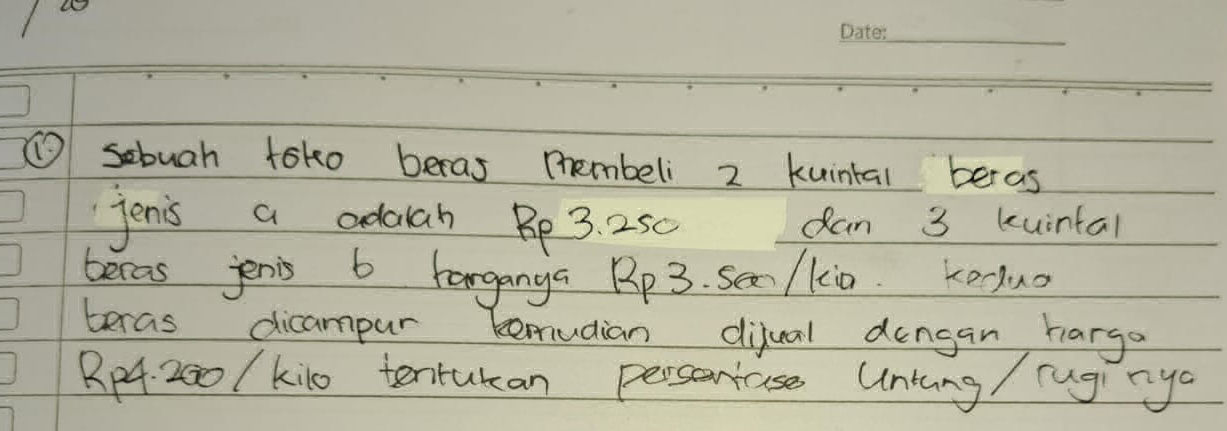 Date:
1. Sebuah toko beras membeli 2 kuintal beras
jenis a adalah Rp 3.250 dan 3 kuintal
beras jenis b harganya Rp 3.500/kilo. kedua
beras dicampur kemudian dijual dengan harga
Rp4.200/kilo tentukan persentase Untung/ruginya